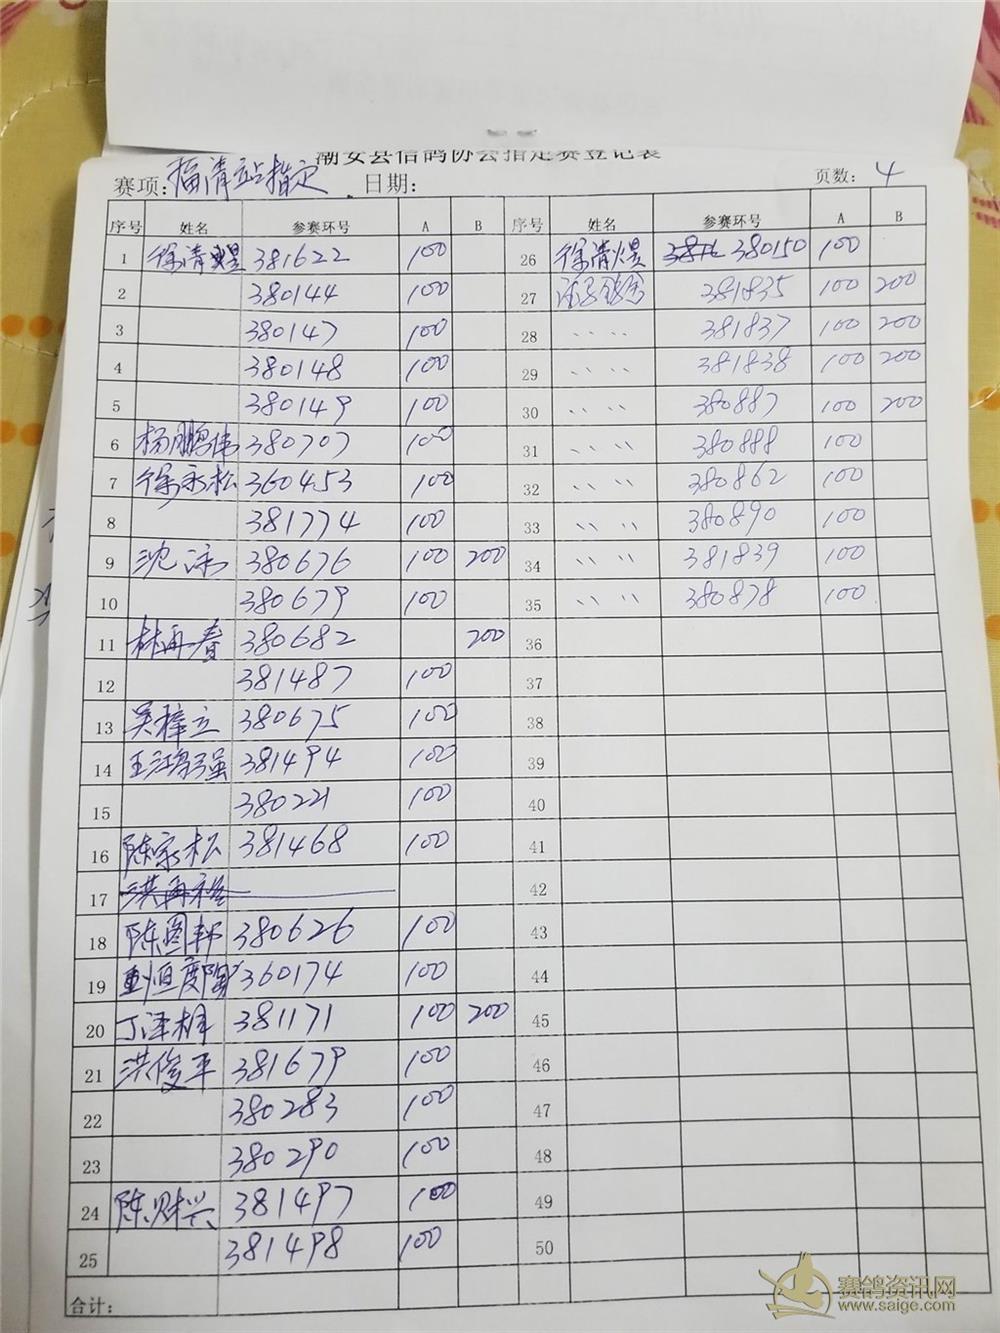 潮安县信鸽协会指定赛登记表
赛项：福清站指定 日期： 页数：4
序号 姓名 参赛环号 A B 序号 姓名 参赛环号 A B
1 徐清煜 381622 100 26 徐清煜 380150 100
2 380144 100 27 381835 100 200
3 380147 100 28 〃 〃 381837 100 200
4 380148 100 29 〃 〃 381838 100 200
5 380149 100 30 〃 〃 380887 100 200
6 杨鹏伟 380707 100 31 〃 〃 380888 100
7 徐永松 360453 100 32 〃 〃 380862 100
8 381774 100 33 〃 〃 380890 100
9 沈 380676 100 200 34 〃 〃 381839 100
10 380679 100 35 〃 〃 380878 100
11 林再春 380682 200 36
12 381487 100 37
13 吴梓立 380675 100 38
14 王江 强 381494 100 39
15 380221 100 40
16 陈家松 381468 100 41
17 洪再裕 42
18 陈图邦 380626 100 43
19 360174 100 44
20 丁泽桐 381171 100 200 45
21 洪俊平 381679 100 46
22 380283 100 47
23 380290 100 48
24 陈财兴 381497 100 49
25 381498 100 50
合计：
赛鸽资讯网
www.saige.com